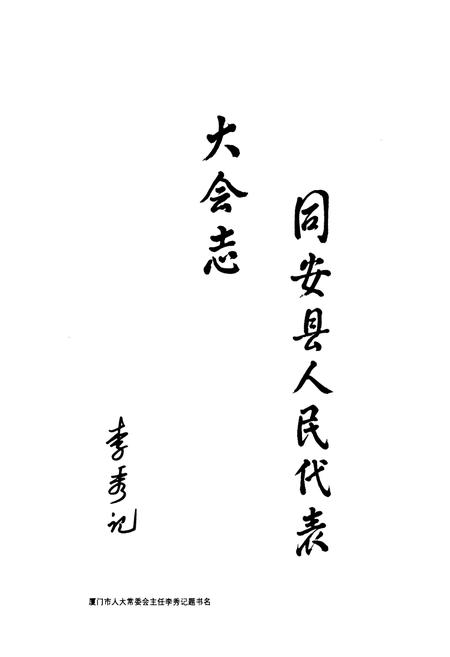 同安县人民代表
大会志
李秀记
厦门市人大常委会主任李秀记题书名